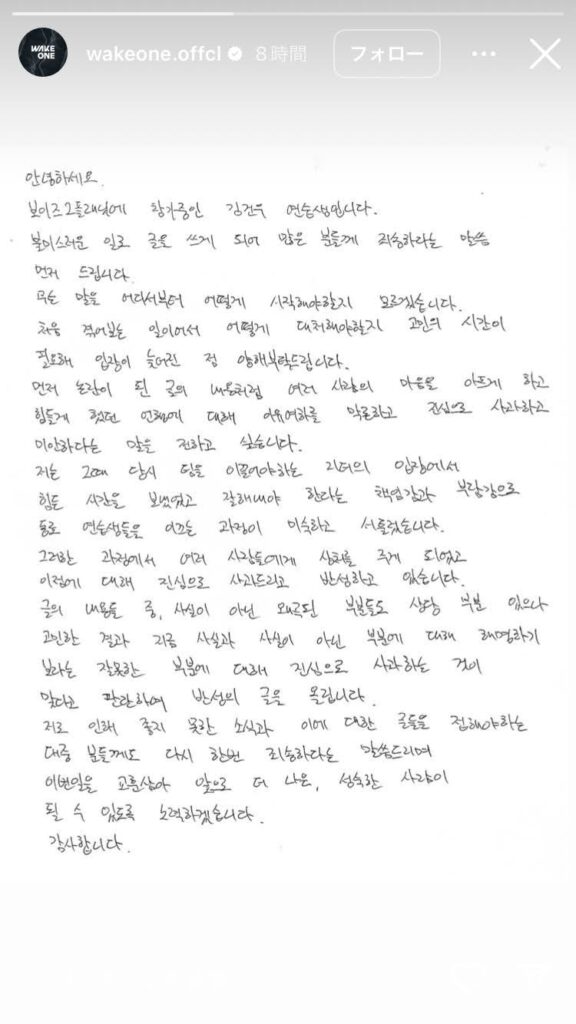 WAKE
ONE
wakeone.offcl
8時間
フォロー
안녕하세요.
보이즈2플래닛에 참가중인 김건우 연습생입니다.
불미스러운 일로 글을 쓰게 되어 많은 분들께 죄송하다는 말씀
먼저 드립니다.
무슨 말을 어디서부터 어떻게 시작해야할지 모르겠습니다.
처음 겪어보는 일이어서 어떻게 대처해야할지 고민의 시간이
필요해 입장이 늦어진 점 양해부탁드립니다.
먼저 논란이 된 글의 내용처럼 여러 사람의 마음을 아프게 하고
힘들게 했던 언행에 대해 이유여하를 막론하고 진심으로 사과하고
미안하다는 말을 전하고 싶습니다.
저는 그때 당시 팀을 이끌어야하는 리더의 입장에서
힘든 시간을 보냈었고 잘해내야 한다는 책임감과 부담감으로
동료 연습생들을 이끄는 과정이 미숙하고 서툴렀습니다.
그러한 과정에서 여러 사람들에게 상처를 주게 되었고
이점에 대해 진심으로 사과드리고 반성하고 있습니다.
글의 내용들 중, 사실이 아닌 왜곡된 부분들도 상당 부분 있으나
고민한 결과 지금 사실과 사실이 아닌 부분에 대해 해명하기
보다는 잘못한 부분에 대해 진심으로 사과하는 것이
맞다고 판단하여 반성의 글을 올립니다.
저로 인해 좋지 못한 소식과 이에 대한 글들을 접해야하는
대중 분들께도 다시 한번 죄송하다는 말씀드리며
이번일을 교훈삼아 앞으로 더 나은, 성숙한 사람이
될 수 있도록 노력하겠습니다.
감사합니다.